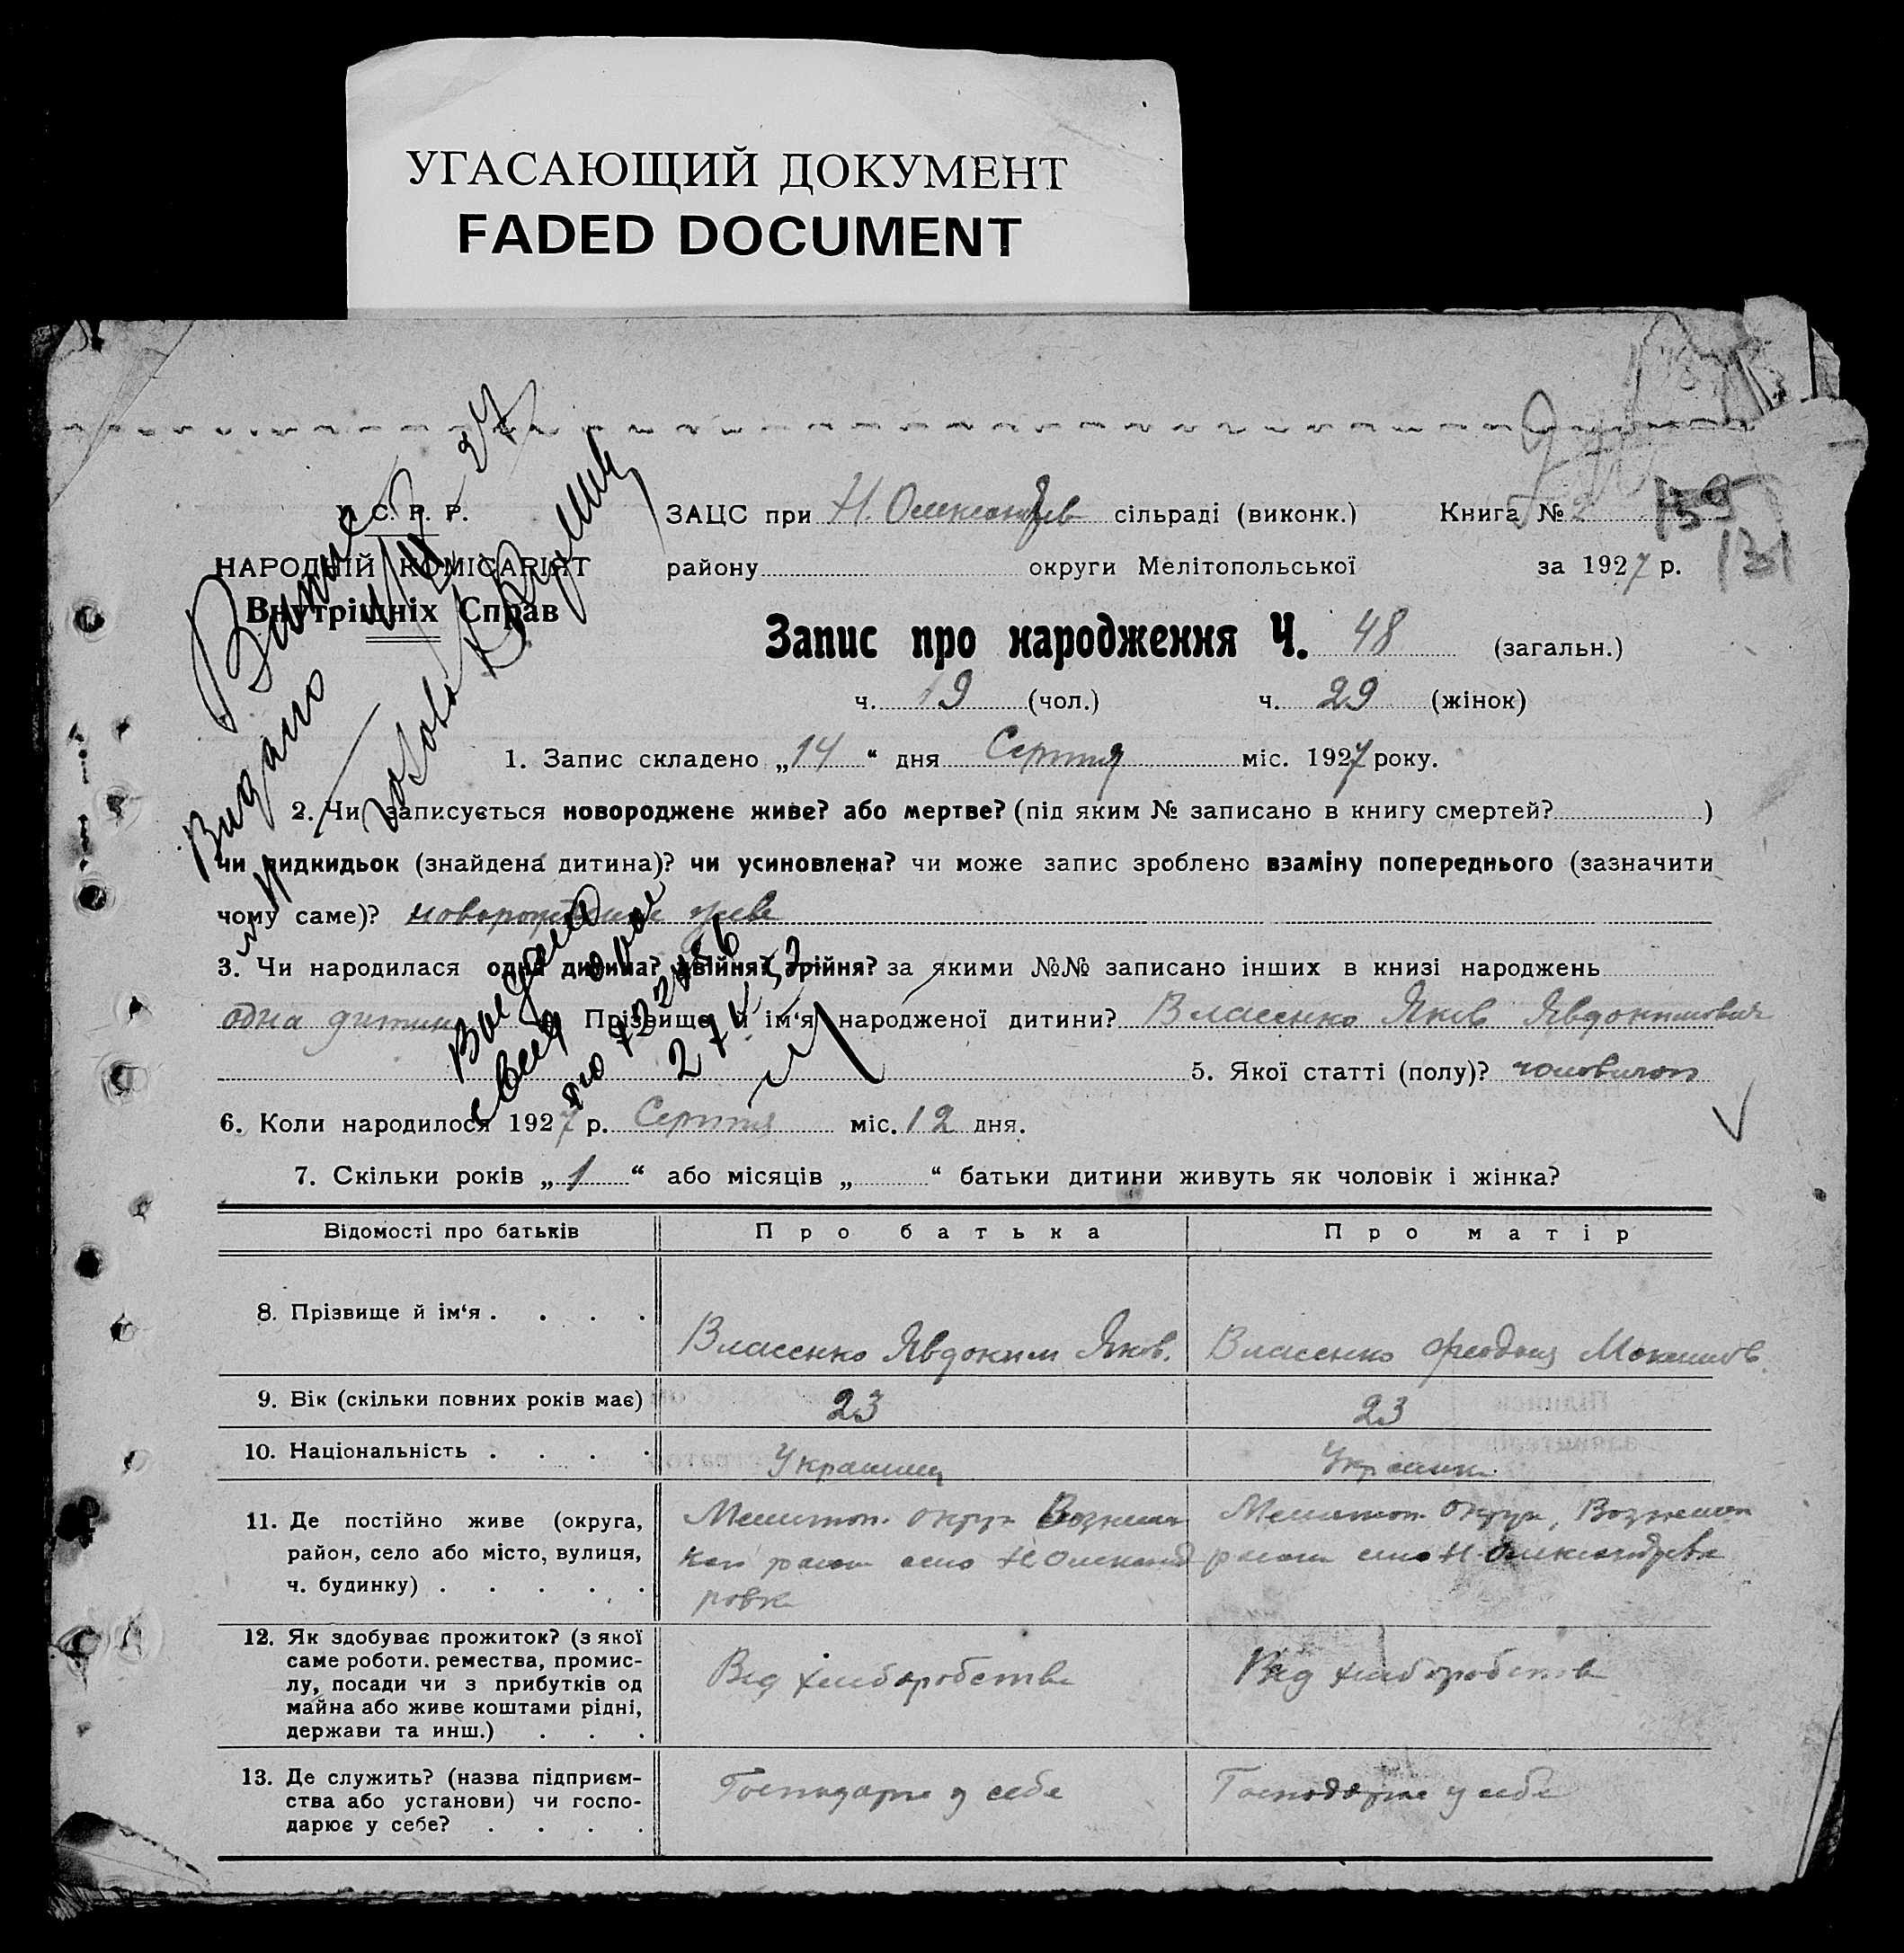 УГАСАЮЩИЙ ДОКУМЕНТ
FADED DOCUMENT
У. С. Р. Р.
НАРОДНІЙ КОМІСАРІЯТ
Внутрішніх Справ
ЗАЦС при Н. Олександрів сільраді (виконк.) Книга № 2
159
131
району округи Мелітопольської за 1927 р.
Запис про народження Ч. 48 (загальн.)
ч. 19 (чол.) ч. 29 (жінок)
1. Запис складено „14“ дня Серпня міс. 1927 року.
2. Чи записується новороджене живе? або мертве? (під яким № записано в книгу смертей? )
чи підкидьок (знайдена дитина)? чи усиновлена? чи може запис зроблено взаміну попереднього (зазначити
чому саме)? новороджене живе
3. Чи народилася одна дитина? двійня? трійня? за якими №№ записано інших в книзі народжень
одна дитина Прізвище й ім‘я народженої дитини? Власенко Яків Явдокимович
5. Якої статті (полу)? чоловічої
6. Коли народилося 1927 р. Серпня міс. 12 дня.
7. Скільки років „1“ або місяців „ “ батьки дитини живуть як чоловік і жінка?
Відомості про батьків Про батька Про матір
8. Прізвище й ім‘я . . . . Власенко Явдоким Яков. Власенко Феодося
9. Вік (скільки повних років має) 23 23
10. Національність . . . . Украинец Украинка
11. Де постійно живе (округа,
район, село або місто, вулиця,
ч. будинку) . . . . .
Мелитоп. округи Вознесен
ровка
Мелитоп. округи, Вознесен
село Н. Олександровка
12. Як здобуває прожиток? (з якої
саме роботи, ремества, промис-
лу, посади чи з прибутків од
майна або живе коштами рідні,
держави та инш.) . . .
Від хліборобства Від хліборобства
13. Де служить? (назва підприєм-
ства або установи) чи госпо-
дарює у себе? . . . .
Господарює у себе Господарює у себе